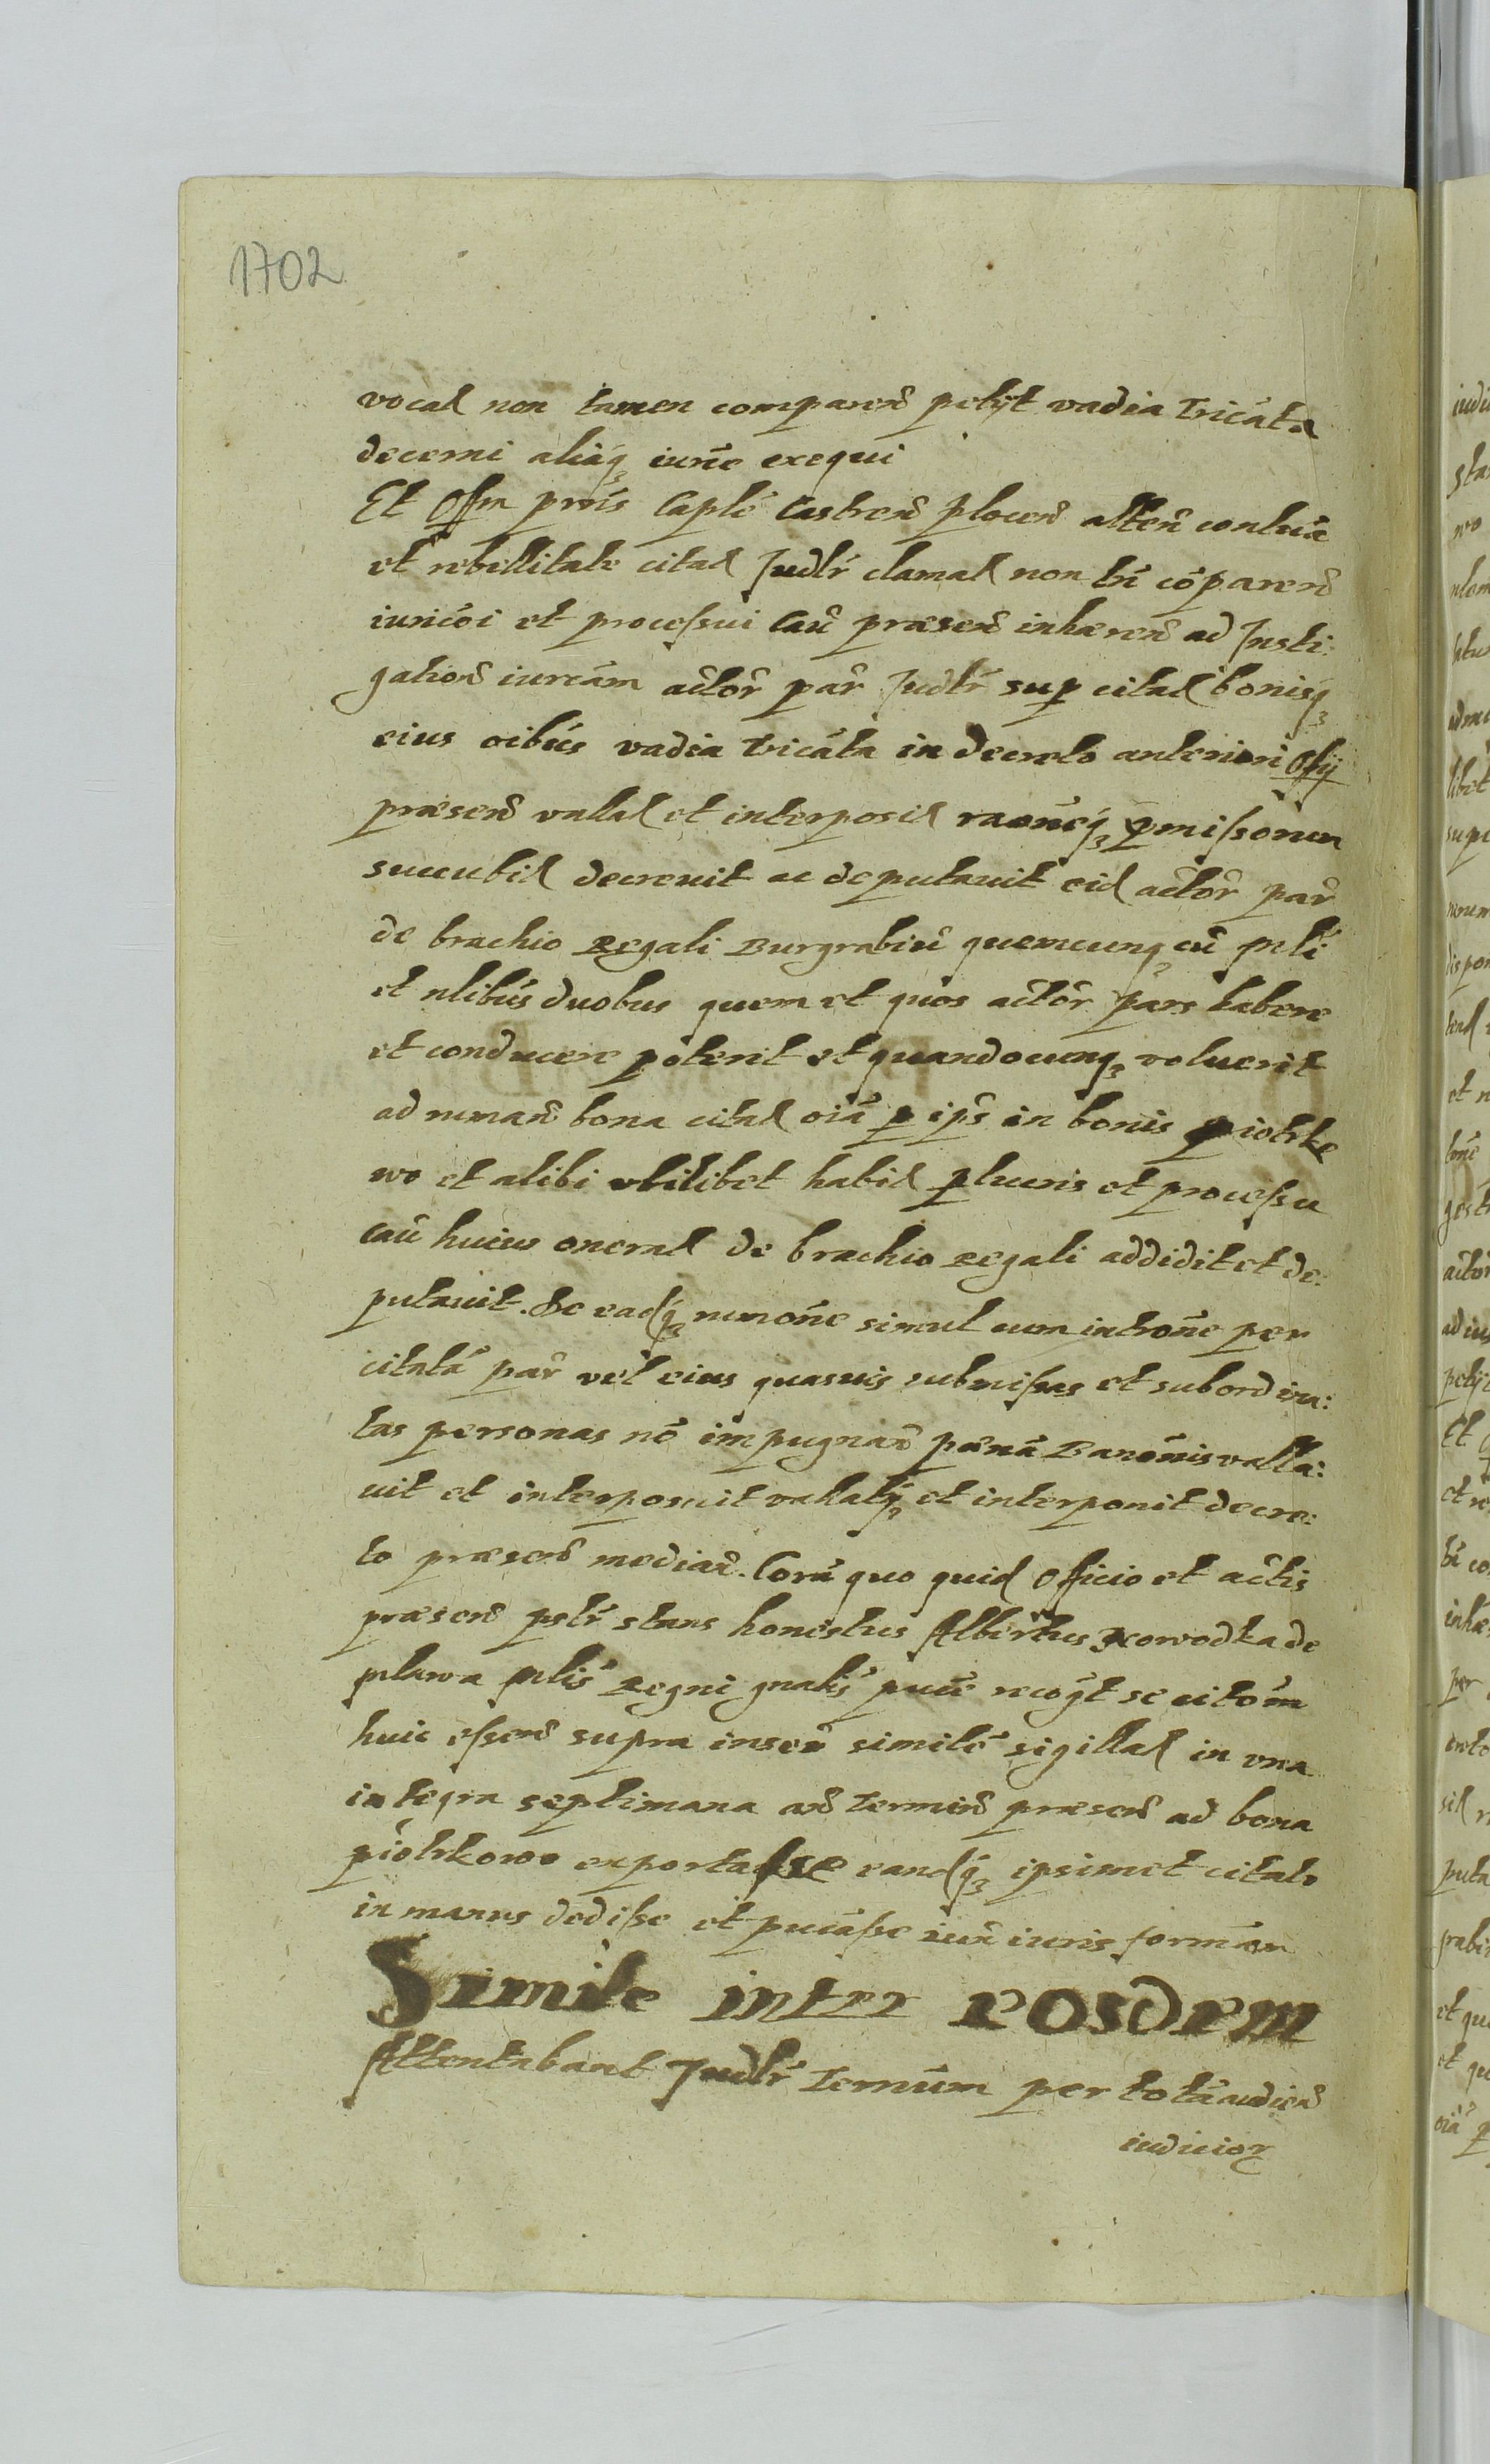 1702
vocal non tamen comparen̄ petijt vadia tricāta
decerni aliaq̨ iurīe exequi
Et Offm pn̄s Caplē Castren̄ plocen̄ atten̄ contuā
et rebellitate citat Judlr̄ clamat non tn̄ cōparen̄
iuricōi et processui Cau᷑ praesen̄ inhaeren̄ ad Insti:
gation̄ iureām actōr par̄ Judlr̄ sup citat bonisq̨
eius oibus vadia tricāta in decreto anteriori Offij
praesen̄ vallat et interposit raōneq̨ p̄missorum
succubit decrevit ac deputauit eid actōr par̄
de brachio Regali Burgrabiū quemcunq̨ cū mli
et nlibus duobus quem et quos actōr pars habere
et conducere poterit et quandocunq̨ voluerit
ad ruman̄ bona citat oiā p ips̄ in bonis Piotrko
wo et alibi vbilibet habit plucris et processu
cau᷑ huius onerat de brachio regali addidit et de:
putauit. De eadq̨ rumōne simul cum introne per
citatā par̄ vel eius quasuis submissas et subordina:
tas personas nō impugnan̄ poenā Banōnis valla:
uit et interposuit vallatq̨ et interponit decre:
to praesen̄ median̄. Corā quo quid Officio et actis
praesen̄ pstr̄ stans honestus Albertus Kowodka de
plawa mlis Regni gnalis pucē recogt se citōm
huic essen̄ supra inser̄ similē sigillat in vna
integra septimana an̄ termin̄ praesen̄ ad bona
piotrkowo exportasse eandq̨ ipsimet citato
in manus dedisse et pucasse iuxā iuris formam
Simile inter eosdem
Attentabant Judlr̄ Termīnum per totā audien̄
iudicior